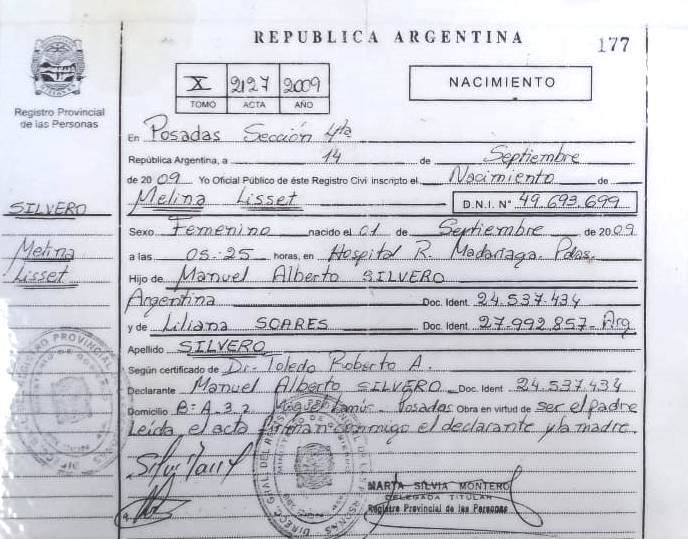 REPUBLICA ARGENTINA
177
Registro Provincial
de las Personas
X 2127 2009
TOMO ACTA AÑO
NACIMIENTO
En Posadas Sección 4ta
República Argentina, a 14 de Septiembre
de 2009 Yo Oficial Público de éste Registro Civi inscripto el Nacimiento de
Melina Lisset D.N.I. N° 49.693.699
SILVERO
Melina
Lisset
Sexo Femenino nacido el 01 de Septiembre de 2009
a las 05:25 horas, en Hospital R. Madariaga. Pdas.
Hijo de Manuel Alberto SILVERO
Argentina Doc. Ident. 24.537.434
y de Liliana SOARES Doc. Ident. 27.992.857- Arg
Apellido SILVERO
Según certificado de Dr. Toledo Roberto A.
Declarante Manuel Alberto SILVERO Doc. Ident 24.537.434
Domicilio Posadas Obra en virtud de ser el padre
Leida el acta firman conmigo el declarante y la madre.
MARTA SILVIA MONTERO
DELEGADA TITULAR
Registro Provincial de las Personas